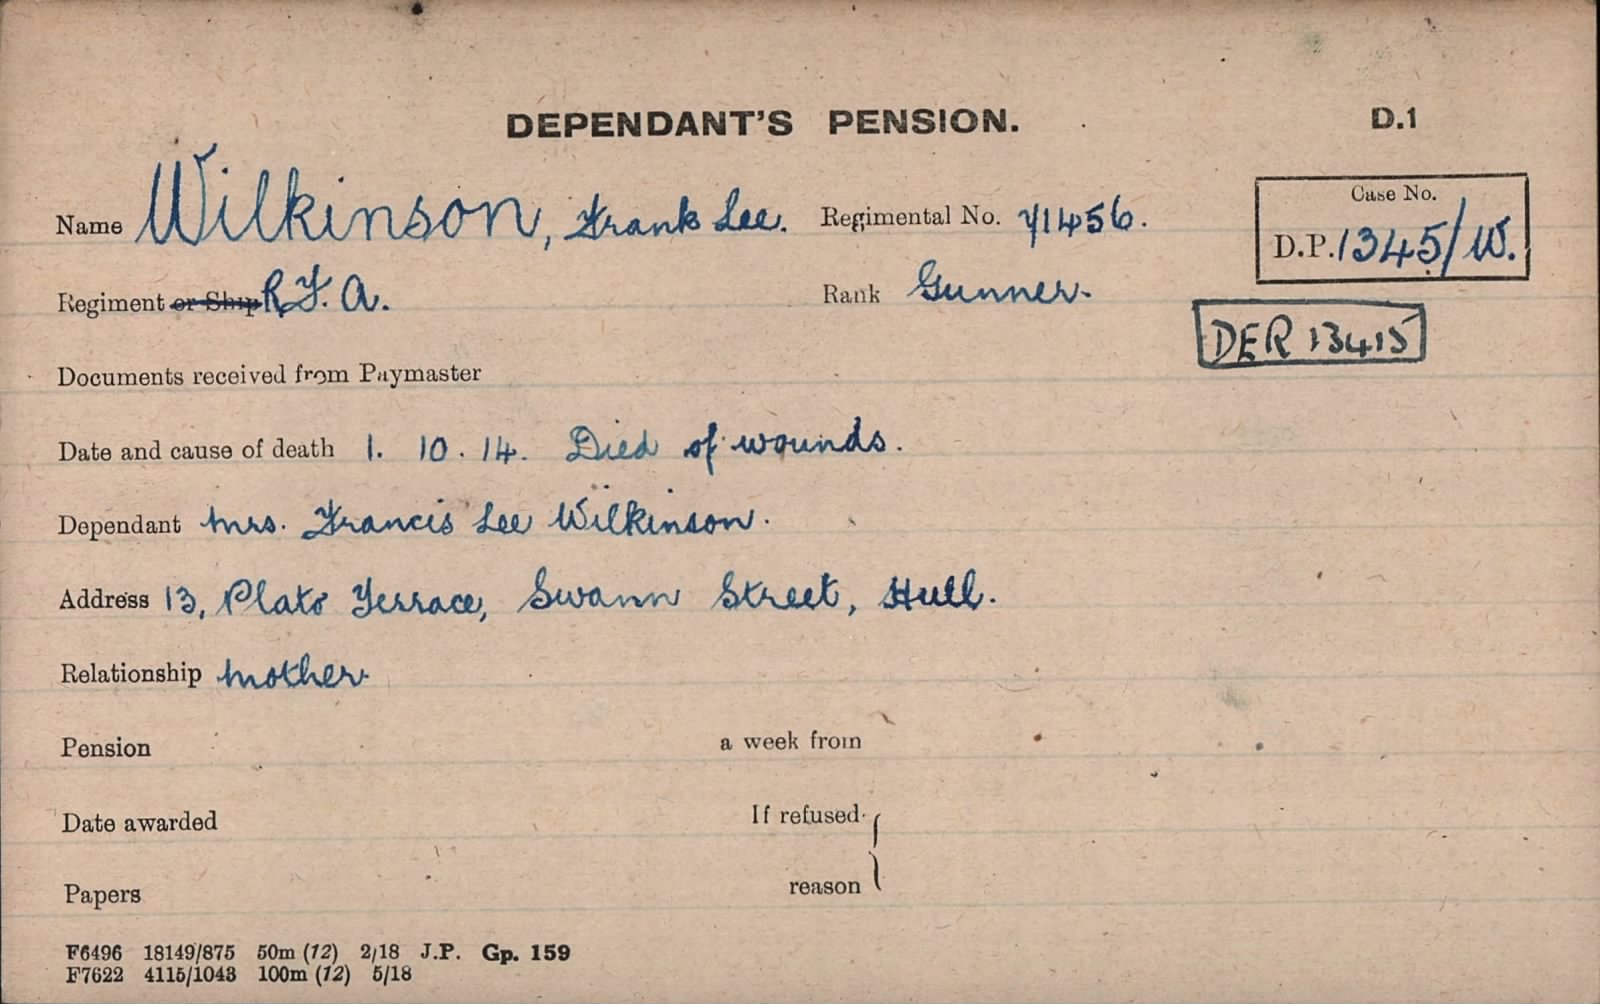 DEPENDANT'S PENSION. D.1
Name Wilkinson, Frank Lee. Regimental No. 71456. Case No.
D.P. 1345/W.
Regiment or Ship R.F.A. Rank Gunner.
DER 13415
Documents received from Paymaster
Date and cause of death 1. 10. 14. Died of wounds.
Dependant Mrs. Francis Lee Wilkinson.
Address 13, Plato Terrace, Swann Street, Hull.
Relationship Mother.
Pension a week from
Date awarded If refused
Papers reason
F6496 18149/875 50m (12) 2/18 J.P. Gp. 159
F7622 4115/1043 100m (12) 5/18